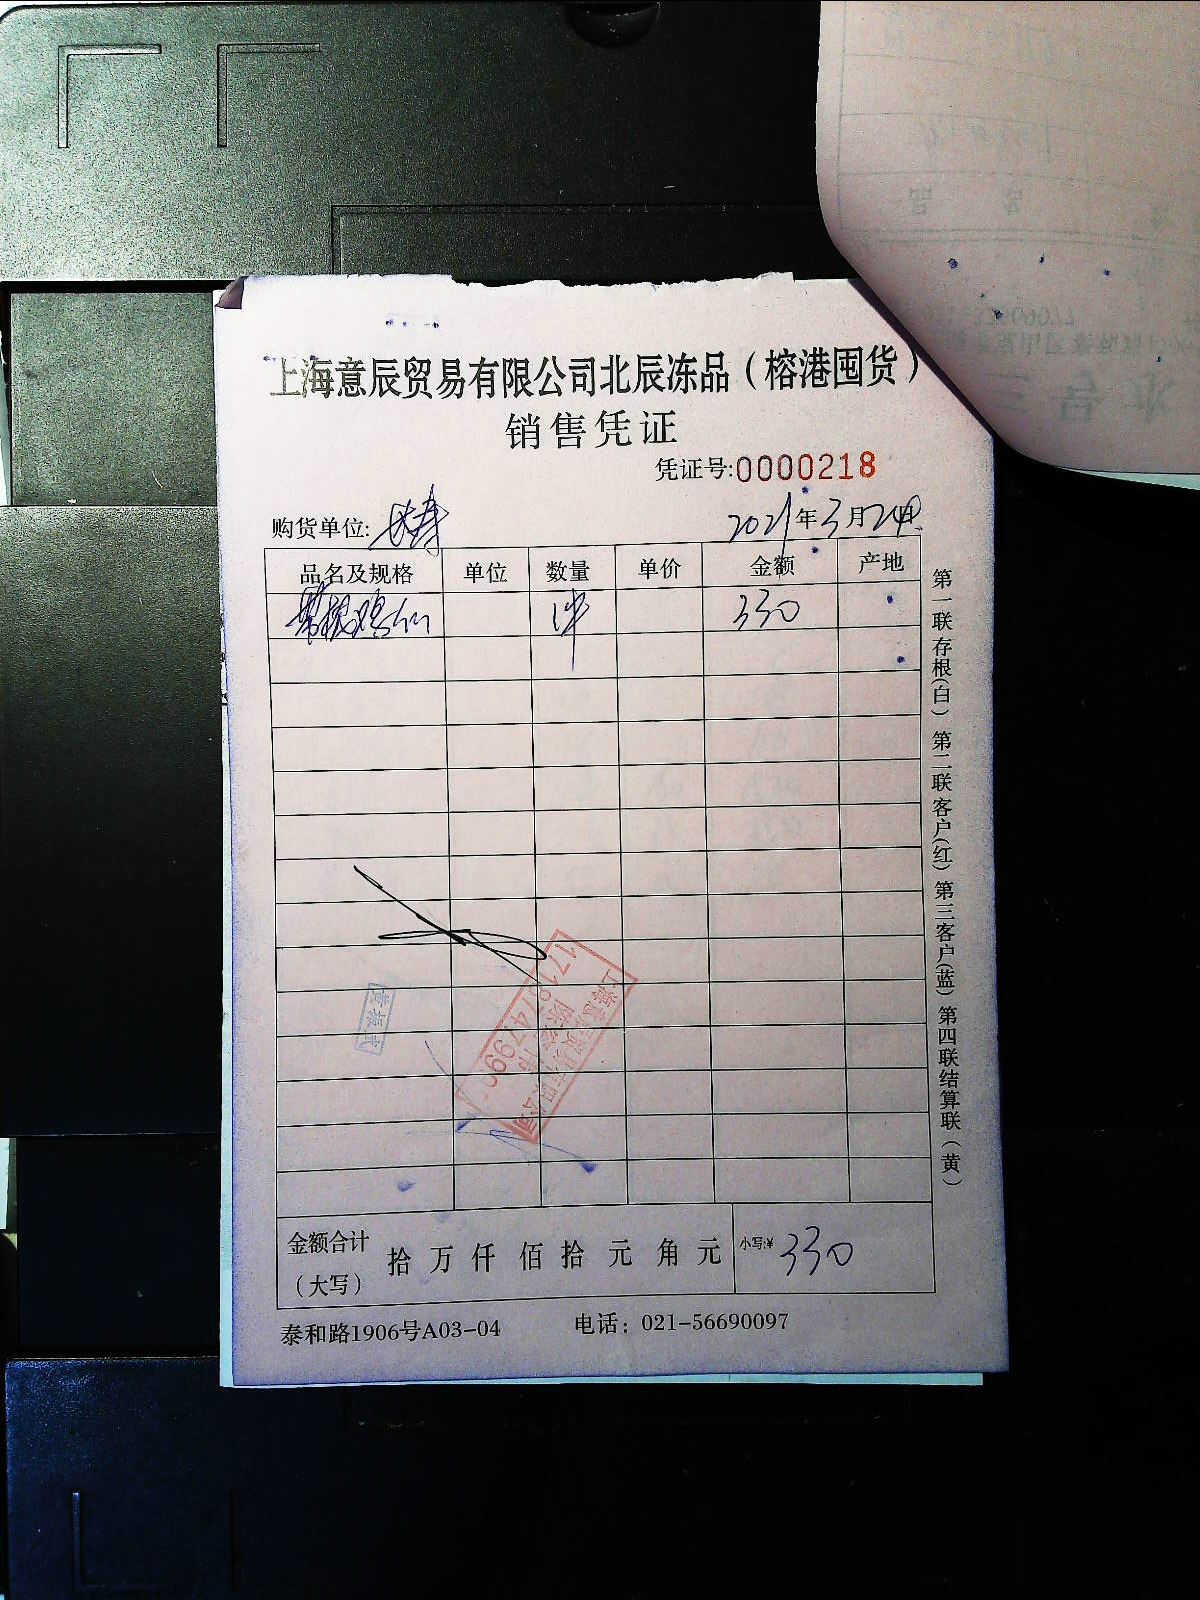 上海意辰贸易有限公司北辰冻品（榕港囤货）
销售凭证
凭证号:0000218
购货单位:
2021年3月24日
品名及规格 单位 数量 单价 金额 产地
1件 330
黄振武
上海意辰贸易有限公司
金额合计（大写） 拾 万 仟 佰 拾 元 角 元 小写:¥ 330
泰和路1906号A03-04 电话：021-56690097
第一联存根(白) 第二联客户(红) 第三客户(蓝) 第四联结算联（黄）